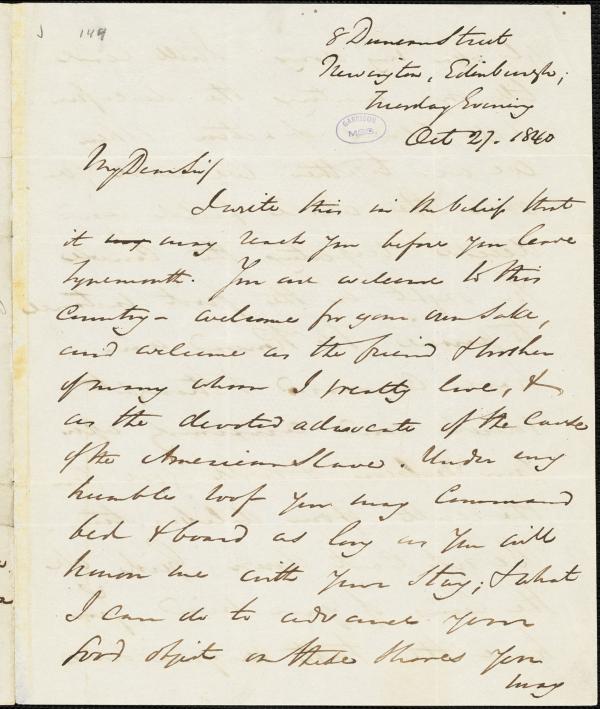 J 149
8 Duncan Street
Newington, Edinburgh;
Tuesday Evening
GARRISON
MSS.
Oct 27. 1840
My Dear Sir/
I write this in the belief that
it may may reach you before you leave
Tynemouth. You are welcome to this
Country - welcome for your own sake,
and welcome as the friend & brother
of many whom I greatly love, &
as the devoted advocate of the Cause
of the American Slave. Under my
humble roof you may Command
bed & board as long as you will
honor me with your stay; & what
I can do to advance your
Good object on these shores you
may